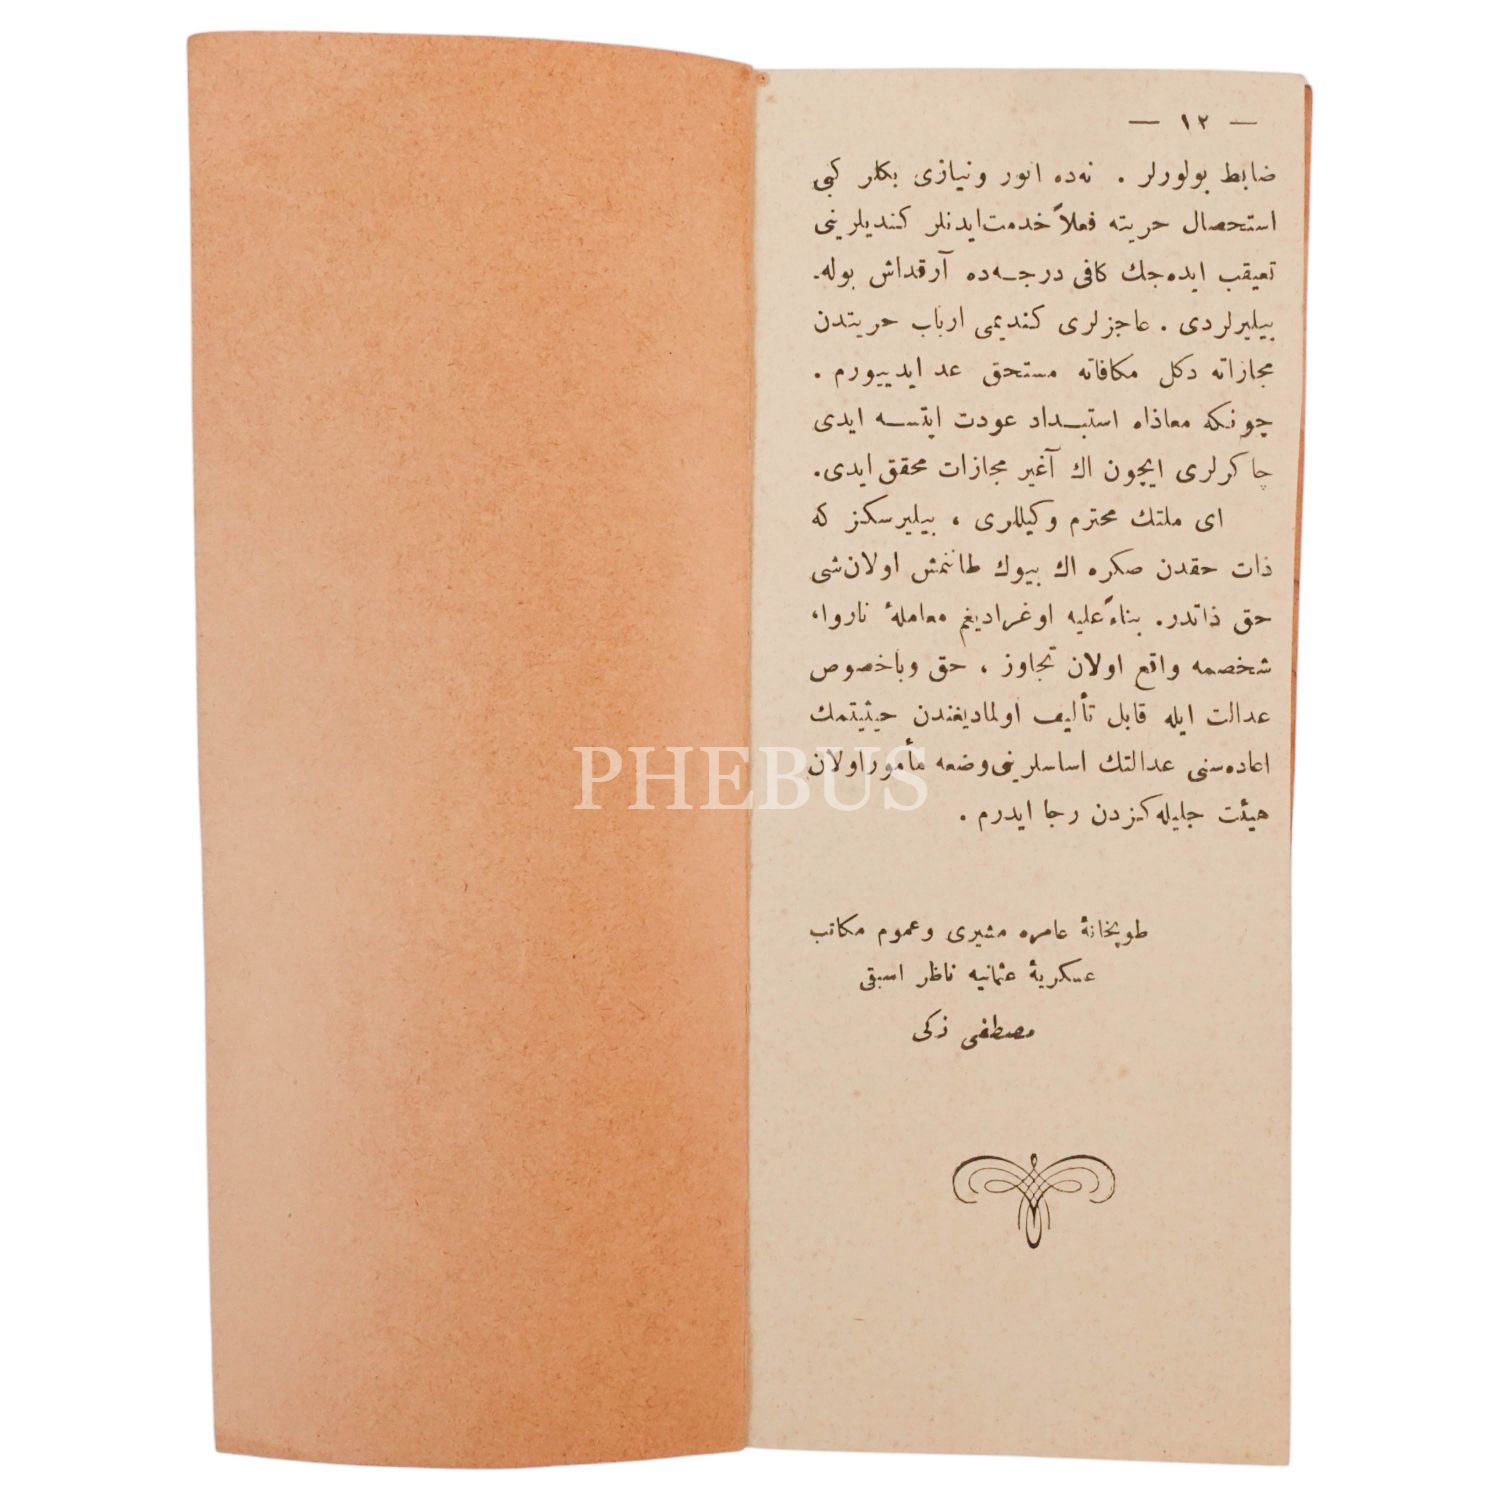 — ١٢ —
ضابط بولورلر . نه‌ده انور ونیازی بكلر كبی
استحصال حریته فعلاً خدمت ایدنلر كندیلرینی
تعیقب ایده‌جك كافی درجه‌ده آرقداش بوله‌
بیلیرلردی . عاجزلری كندیمی ارباب حریتدن
مجازاته دكل مكافاته مستحق عد ایدییورم .
چونكه معاذاه استبداد عودت ایتسه ایدی
چاكرلری ایچون اك آغیر مجازات محقق ایدی.
ای ملتك محترم وكیللری ، بیلیرسكز كه
ذات حقدن صكره اك بیوك طانمش اولان شی
حق ذاتدر. بناءً علیه اوغرادیغم معاملهٔ ناروا،
شخصمه واقع اولان تجاوز ، حق وباخصوص
عدالت ایله قابل تألیف اولمادیغندن حیثیتمك
اعاده‌سنی عدالتك اساسلرینی وضعه مأمور اولان
هیئت جلیله‌كزدن رجا ایدرم .
طوپخانهٔ عامره مشیری وعموم مكاتب
عسكریهٔ عثمانیه ناظر اسبقی
مصطفی زكی
PHEBUS